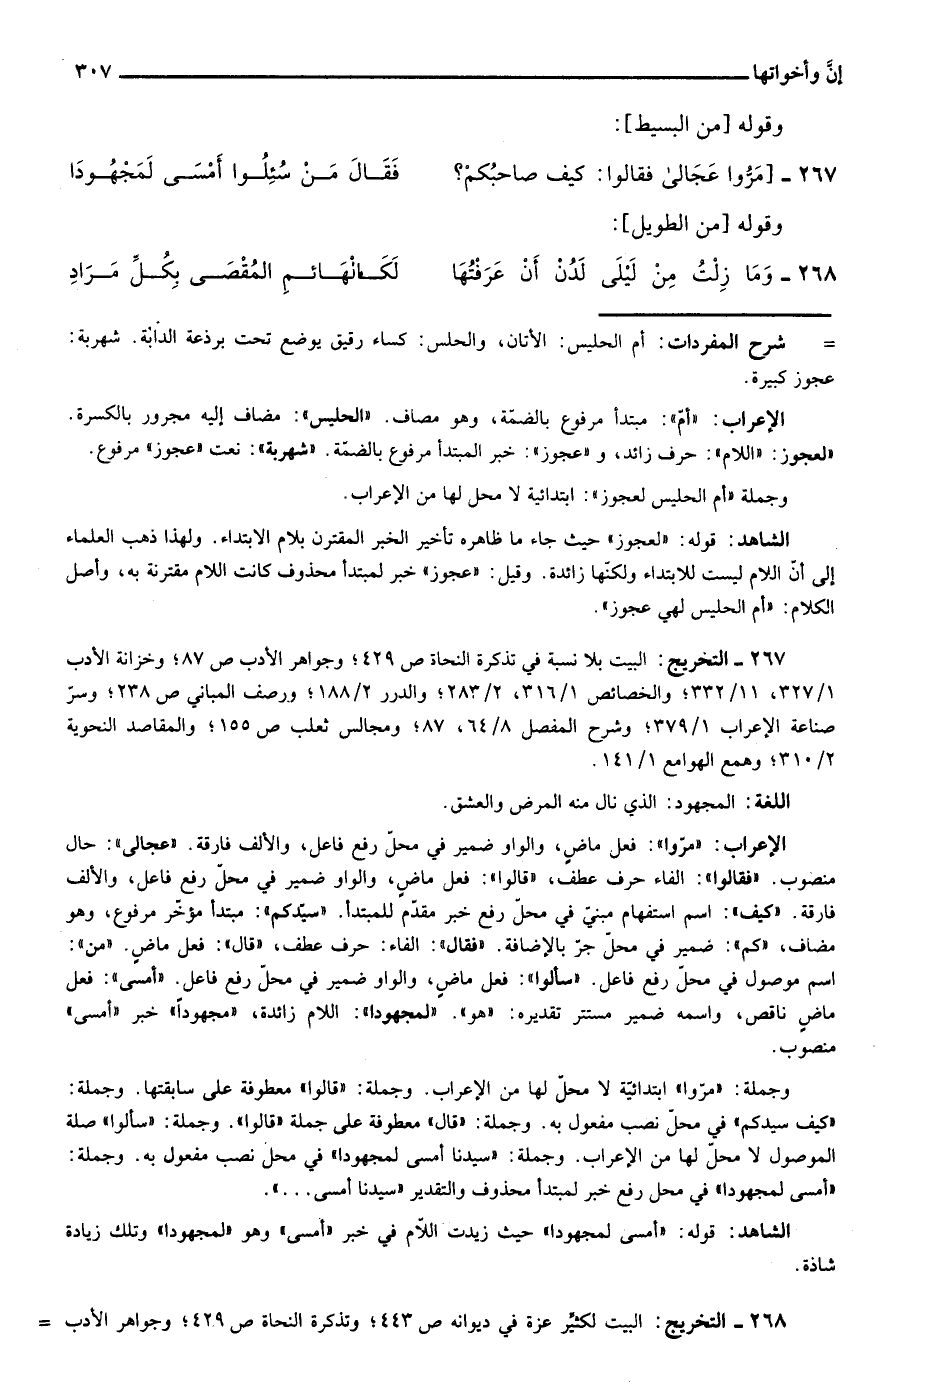 إنَّ وأخواتها ٣٠٧
وقوله [من البسيط]:
٢٦٧ ـ [مَرُّوا عَجَالىٰ فقالوا: كيف صاحبُكمْ؟ فَقَـالَ مَـنْ سُئِلُـوا أَمْسَـى لَمَجْهُـودَا
وقوله [من الطويل]:
٢٦٨ ـ وَمَا زِلْتُ مِنْ لَيْلَى لَدُنْ أَنْ عَرَفْتُهَا لَكَـالْهَـائـمِ المُقْصَـى بِكُـلِّ مَـرَادِ
= شرح المفردات: أم الحليس: الأتان، والحلس: كساء رقيق يوضع تحت برذعة الدابّة. شهربة:
عجوز كبيرة.
الإعراب: «أمّ»: مبتدأ مرفوع بالضمّة، وهو مصاف. «الحليس»: مضاف إليه مجرور بالكسرة.
«لعجوز: «اللام»: حرف زائد، و «عجوز»: خبر المبتدأ مرفوع بالضمّة. «شهربة»: نعت «عجوز» مرفوع.
وجملة «أم الحليس لعجوز»: ابتدائية لا محل لها من الإعراب.
الشاهد: قوله: «لعجوز» حيث جاء ما ظاهره تأخير الخبر المقترن بلام الابتداء. ولهذا ذهب العلماء
إلى أنّ اللام ليست للابتداء ولكنّها زائدة. وقيل: «عجوز» خبر لمبتدأ محذوف كانت اللام مقترنة به، وأصل
الكلام: «أم الحليس لهي عجوز».
٢٦٧ ـ التخريج: البيت بلا نسبة في تذكرة النحاة ص ٤٢٩؛ وجواهر الأدب ص ٨٧؛ وخزانة الأدب
٣٢٧/١، ٣٣٢/١١؛ والخصائص ٣١٦/١، ٢٨٣/٢؛ والدرر ١٨٨/٢؛ ورصف المباني ص ٢٣٨؛ وسرّ
صناعة الإعراب ٣٧٩/١؛ وشرح المفصل ٦٤/٨، ٨٧؛ ومجالس ثعلب ص ١٥٥؛ والمقاصد النحوية
٣١٠/٢؛ وهمع الهوامع ١٤١/١.
اللغة: المجهود: الذي نال منه المرض والعشق.
الإعراب: «مرّوا»: فعل ماضٍ، والواو ضمير في محلّ رفع فاعل، والألف فارقة. «عجالى»: حال
منصوب. «فقالوا»: الفاء حرف عطف، «قالوا»: فعل ماضٍ، والواو ضمير في محلّ رفع فاعل، والألف
فارقة. «كيف»: اسم استفهام مبنيّ في محلّ رفع خبر مقدّم للمبتدأ. «سيّدكم»: مبتدأ مؤخّر مرفوع، وهو
مضاف، «كم»: ضمير في محلّ جرّ بالإضافة. «فقال»: الفاء: حرف عطف، «قال»: فعل ماضٍ. «من»:
اسم موصول في محلّ رفع فاعل. «سألوا»: فعل ماضٍ، والواو ضمير في محلّ رفع فاعل. «أمسى»: فعل
ماضٍ ناقص، واسمه ضمير مستتر تقديره: «هو». «لمجهودا»: اللام زائدة، «مجهوداً» خبر «أمسى»
منصوب.
وجملة: «مرّوا» ابتدائيّة لا محلّ لها من الإعراب. وجملة: «قالوا» معطوفة على سابقتها. وجملة:
«كيف سيدكم» في محلّ نصب مفعول به. وجملة: «قال» معطوفة على جملة «قالوا». وجملة: «سألوا» صلة
الموصول لا محلّ لها من الإعراب. وجملة: «سيدنا أمسى لمجهودا» في محل نصب مفعول به. وجملة:
«أمسى لمجهودا» في محل رفع خبر لمبتدأ محذوف والتقدير «سيدنا أمسى...».
الشاهد: قوله: «أمسى لمجهودا» حيث زيدت اللاّم في خبر «أمسى» وهو «لمجهودا» وتلك زيادة
شاذة.
٢٦٨ ـ التخريج: البيت لكثيِّر عزة في ديوانه ص ٤٤٣؛ وتذكرة النحاة ص ٤٢٩؛ وجواهر الأدب =